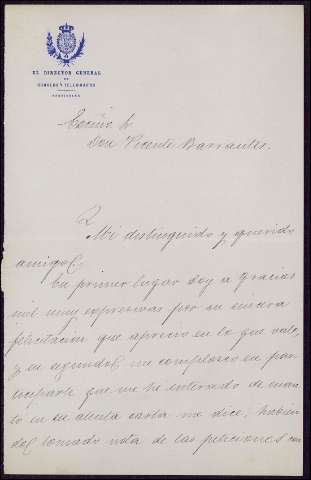 EL DIRECTOR GENERAL
DE
CORREOS Y TELEGRAFOS
PARTICULAR
Excmo Sr
Don Vicente Barrantes.
Mi distinguido y querido
amigo:
En primer lugar doy a V gracias
mil muy expresivas por su sincera
felicitación que aprecio en lo que vale,
y en segundo, me complazco en par-
ticiparle que me he enterado de cuan-
to en su atenta carta me dice, habien-
do tomado nota de las peticiones con